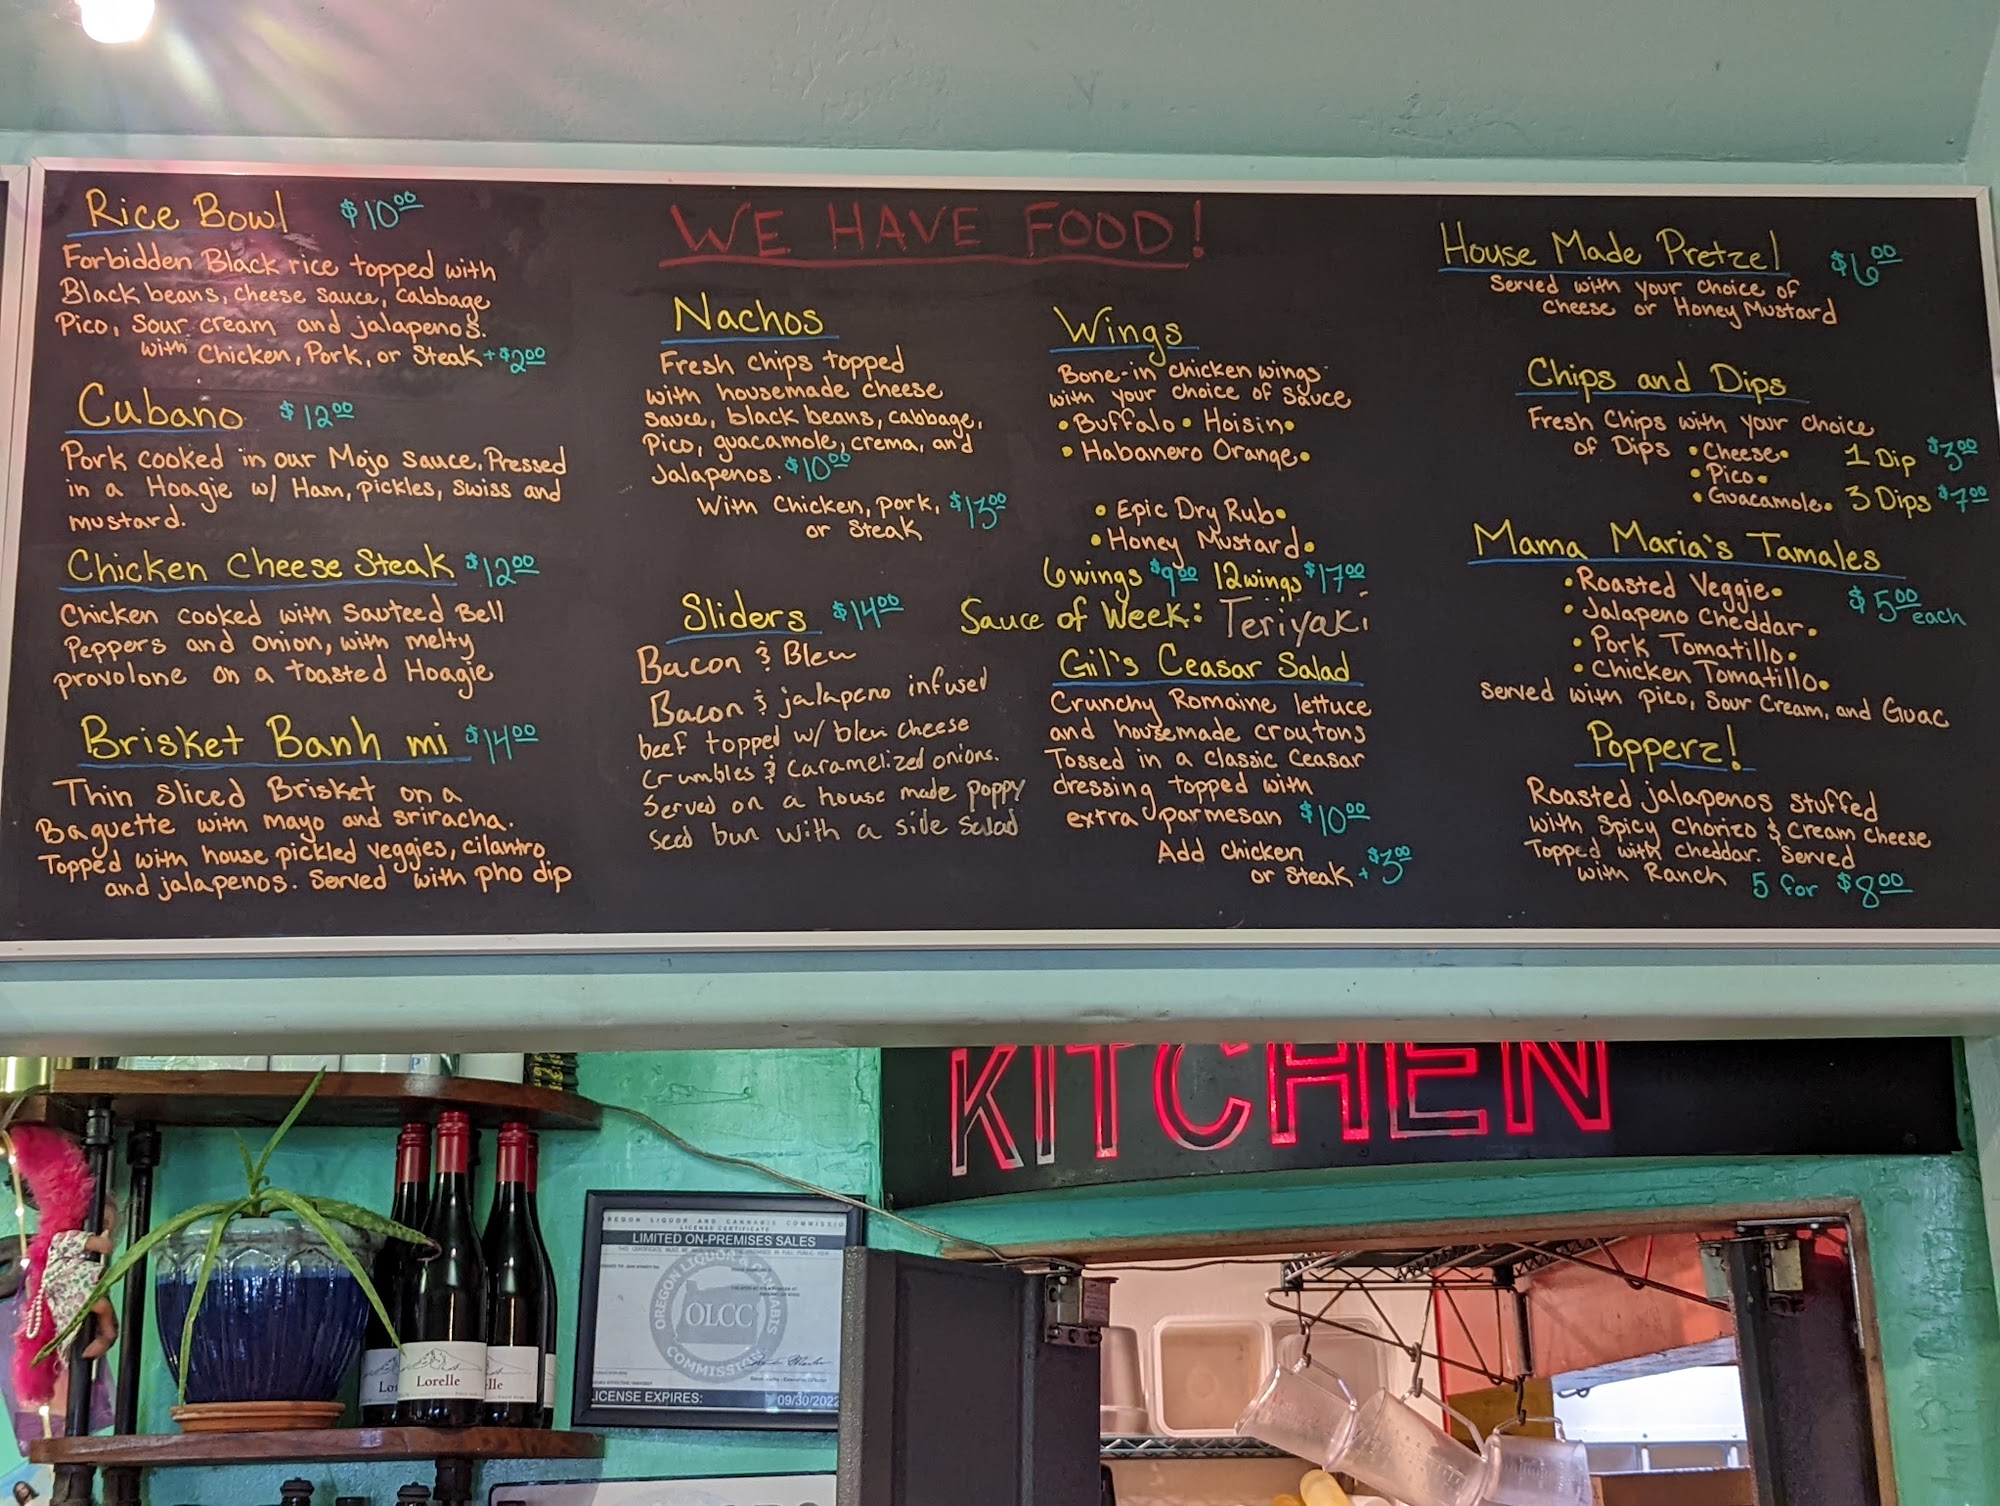 WE HAVE FOOD!
Rice Bowl $10.00
Forbidden Black rice topped with
Black beans, cheese sauce, cabbage
Pico, Sour cream and jalapenos.
with Chicken, Pork, or Steak + $2.00
Cubano $12.00
Pork cooked in our Mojo sauce. Pressed
in a Hoagie w/ Ham, pickles, Swiss and
mustard.
Chicken Cheese Steak $12.00
Chicken cooked with Sauteed Bell
Peppers and onion, with melty
provolone on a toasted Hoagie
Brisket Banh mi $14.00
Thin sliced Brisket on a
Baguette with mayo and sriracha.
Topped with house pickled veggies, cilantro
and jalapenos. Served with pho dip
Nachos
Fresh chips topped
with housemade cheese
sauce, black beans, cabbage,
Pico, guacamole, crema, and
Jalapenos. $10.00
With Chicken, pork, $13.00
or Steak
Sliders $14.00
Bacon & Bleu
Bacon & jalapeno infused
beef topped w/ bleu cheese
crumbles & caramelized onions.
Served on a house made poppy
seed bun with a side salad
Wings
Bone-in chicken wings
with your choice of sauce
• Buffalo • Hoisin •
• Habanero Orange •
• Epic Dry Rub •
• Honey Mustard •
6 wings $9.00 12 wings $17.00
Sauce of Week: Teriyaki
Gil's Ceasar Salad
Crunchy Romaine lettuce
and housemade croutons
Tossed in a classic Ceasar
dressing topped with
extra parmesan $10.00
Add chicken
or Steak + $3.00
House Made Pretzel $6.00
Served with your choice of
cheese or Honey Mustard
Chips and Dips
Fresh Chips with your choice
of Dips • Cheese • 1 Dip $3.00
• Pico •
• Guacamole • 3 Dips $7.00
Mama Maria's Tamales
• Roasted Veggie • $5.00 each
• Jalapeno Cheddar •
• Pork Tomatillo •
• Chicken Tomatillo •
served with pico, Sour Cream, and Guac
Popperz!
Roasted jalapenos stuffed
with Spicy Chorizo & cream cheese
Topped with cheddar. Served
with Ranch 5 for $8.00
KITCHEN
OREGON LIQUOR AND CANNABIS COMMISSIO
LICENSE CERTIFICATE
LIMITED ON-PREMISES SALES
OREGON LIQUOR & CANNABIS
OLCC
COMMISSION
LICENSE EXPIRES: 09/30/2022
Lorelle